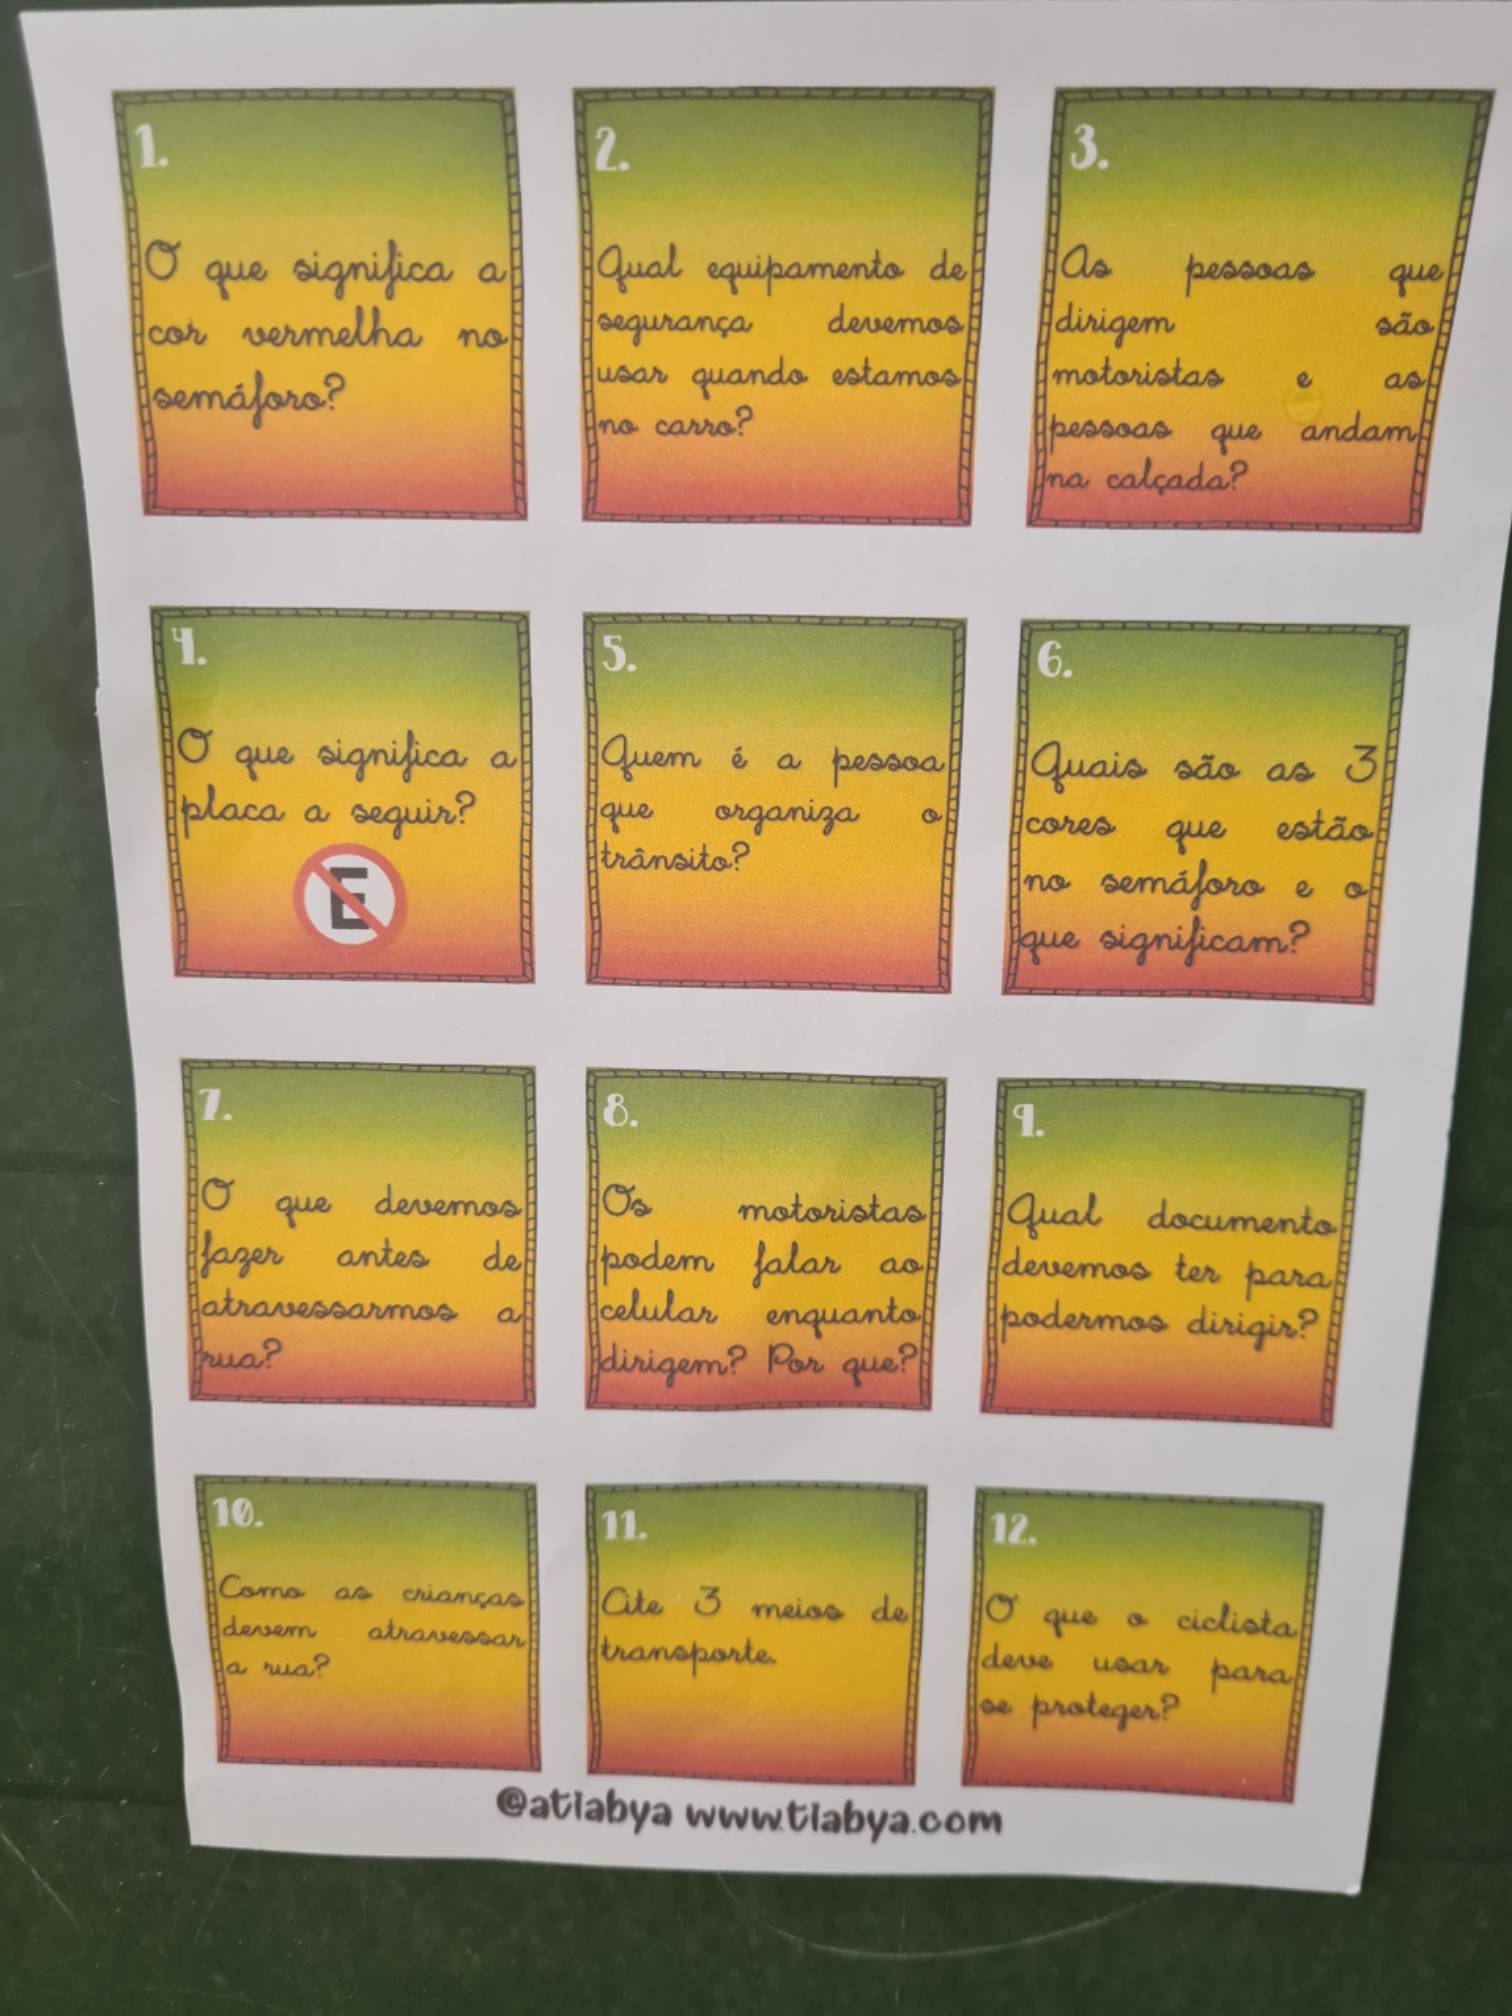 1.
O que significa a
cor vermelha no
semáforo?
2.
Qual equipamento de
segurança devemos
usar quando estamos
no carro?
3.
As pessoas que
dirigem são
motoristas e as
pessoas que andam
na calçada?
4.
O que significa a
placa a seguir?
E
5.
Quem é a pessoa
que organiza o
trânsito?
6.
Quais são as 3
cores que estão
no semáforo e o
que significam?
7.
O que devemos
fazer antes de
atravessarmos a
rua?
8.
Os motoristas
podem falar ao
celular enquanto
dirigem? Por que?
9.
Qual documento
devemos ter para
podermos dirigir?
10.
Como as crianças
devem atravessar
a rua?
11.
Cite 3 meios de
transporte.
12.
O que o ciclista
deve usar para
se proteger?
@atiabya www.tiabya.com